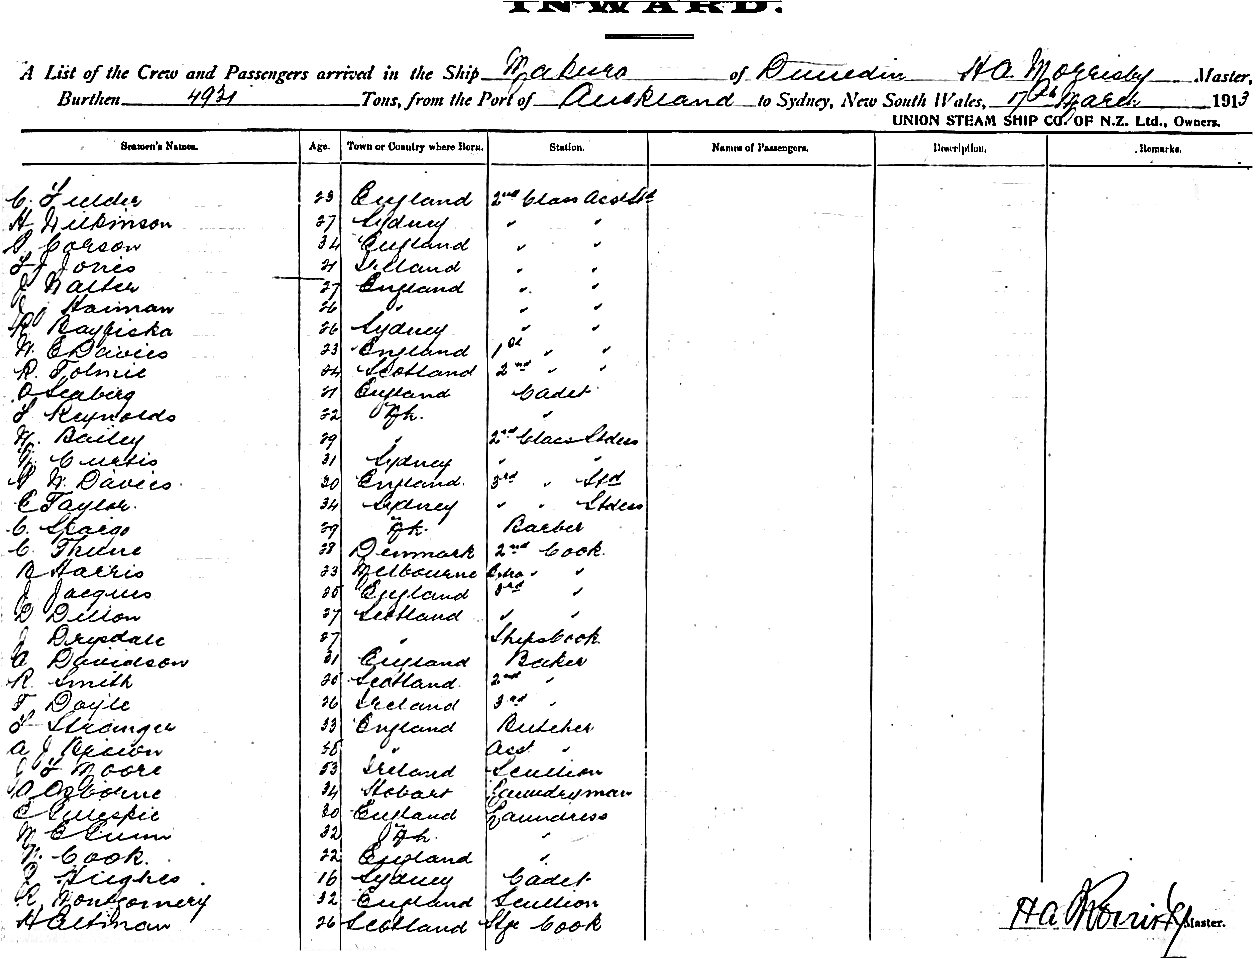 INWARD.
A List of the Crew and Passengers arrived in the Ship Makura of Dunedin H A Morrisby Master,
Burthen 4921 Tons, from the Port of Auckland to Sydney, New South Wales, 17th March 1913
UNION STEAM SHIP CO. OF N.Z. Ltd., Owners.
Seamen's Names. Age. Town or Country where Born. Station. Names of Passengers. Description. Remarks.
C. Fielder 23 England 2nd Class Asst Std
H Wilkinson 27 Sydney " "
Corson 34 England " "
F J Jones 21 Ireland " "
J Walter 27 England " "
Haiman 26 " " "
R 26 Sydney " "
W. E Davies 23 England 1st " "
R. Tolmie 24 Scotland 2nd " "
O Seaberg 21 England Cadet
F Reynolds 22 "
W. Bailey 29 " 2nd Class Stdess
Curtis 31 Sydney " "
W. Davies 30 England 3rd " Std
E Taylor. 34 Sydney " " Stdess
C. Spargo 29 Barber
C. Thune 28 Denmark 2nd Cook
Harris 23 Melbourne Extra " "
J Jacques 25 England 3rd "
D Dillon 27 Scotland " "
J Drysdale 27 " Ships Cook
A Davidson 31 England Baker
R. Smith 20 Scotland 2nd "
T Doyle 26 Ireland 3rd "
F Stranger 33 England Butcher
A J " Asst "
F Moore 53 Ireland Scullion
A Osborne 34 Hobart Laundryman
E Gillespie 30 England Laundress
W E Gunn 32 "
W. Cook. 22 England "
Hughes 16 Sydney Cadet
R. Montgomery 32 England Scullion
H Altman 26 Scotland Stge Cook
H A Morrisby Master.